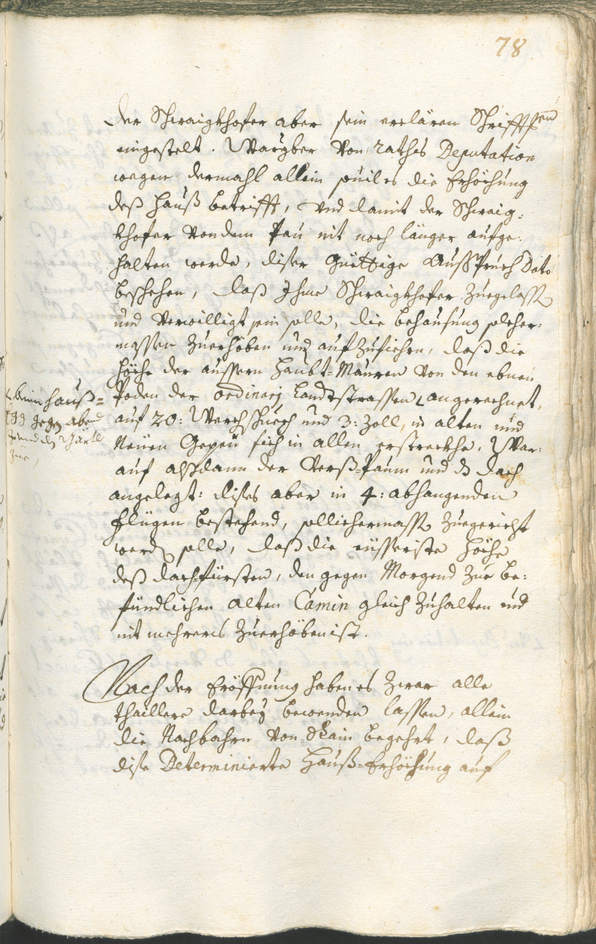 78
der Schraigkhofer aber sein erclären Schrifft
eingestelt. Waryber von raths Deputation
wegen dermahl allein souil es die Erhöchung
deß Hauß betrifft, und damit der Schraig-
khofer von dem Pau nit noch länger aufge-
halten werde, diser güettige Außspruch dato
beschehen, daß Ihme Schraigkhofer zuegelasst
und verwilligt sein solle, die behausung solcher-
massen zuerhöben und aufzufiehren, daß die
höche der aussern Haubt-Mauren von den ebnen
Poden der ordinarj Landtstrassen angerechnet,
auf 20: Werchschuech und 3: Zoll, in alten und
Neuen Gepeu sich in allen erstreckhe, War-
auf alßdann der und dz dach
angelegt: dises aber in 4: abhangenden
Flügen bestehend, sollichermasst zuegericht
werden solle, daß die eisseriste höche
deß dachfürsten, den gegen Morgend zur be-
fündlichen alten Camin gleich zuhalten und
nit mehrers zuerhöben ist.
hauß=
gegen abend
Nach der Eröffnung haben es zwar alle
thaillere darbey bewenden lassen, allein
die Nachbahrn von Rain begehrt, daß
dise Determinierte Hauß-Erhöchung auf